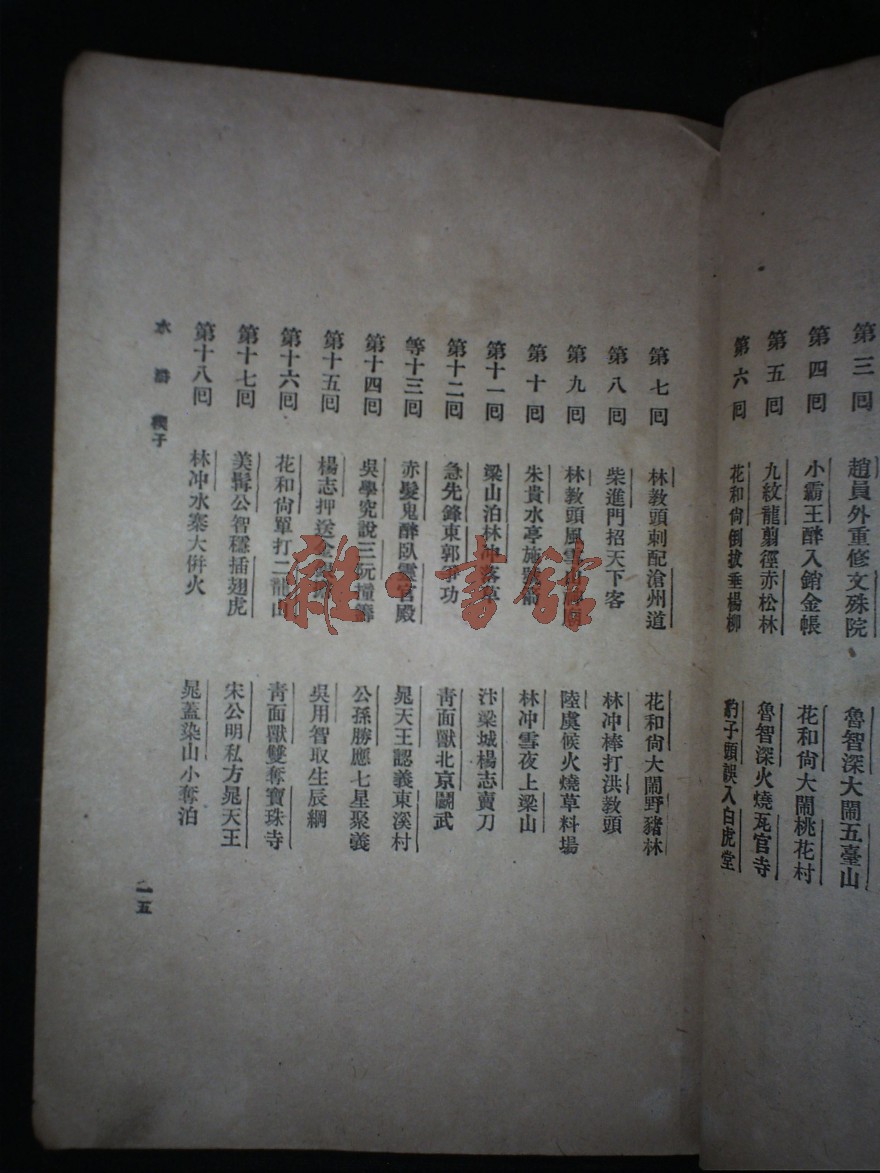 第三回 趙員外重修文殊院 魯智深大鬧五臺山
第四回 小霸王醉入銷金帳 花和尙大鬧桃花村
第五回 九紋龍翦徑赤松林 魯智深火燒瓦官寺
第六回 花和尙倒拔垂楊柳 豹子頭誤入白虎堂
第七回 林教頭刺配滄州道 花和尙大鬧野豬林
第八回 柴進門招天下客 林冲棒打洪教頭
第九回 林教頭風雪山神廟 陸虞候火燒草料場
第十回 朱貴水亭施號箭 林冲雪夜上梁山
第十一回 梁山泊林冲落草 汴梁城楊志賣刀
第十二回 急先鋒東郭爭功 靑面獸北京鬭武
等十三回 赤髮鬼醉臥靈官殿 晁天王認義東溪村
第十四回 吳學究說三阮撞籌 公孫勝應七星聚義
第十五回 楊志押送金銀擔 吳用智取生辰綱
第十六回 花和尙單打二龍山 靑面獸雙奪寶珠寺
第十七回 美髯公智穩插翅虎 宋公明私方晁天王
第十八回 林冲水寨大倂火 晁蓋染山小奪泊
水滸 楔子
二五
雜·書館